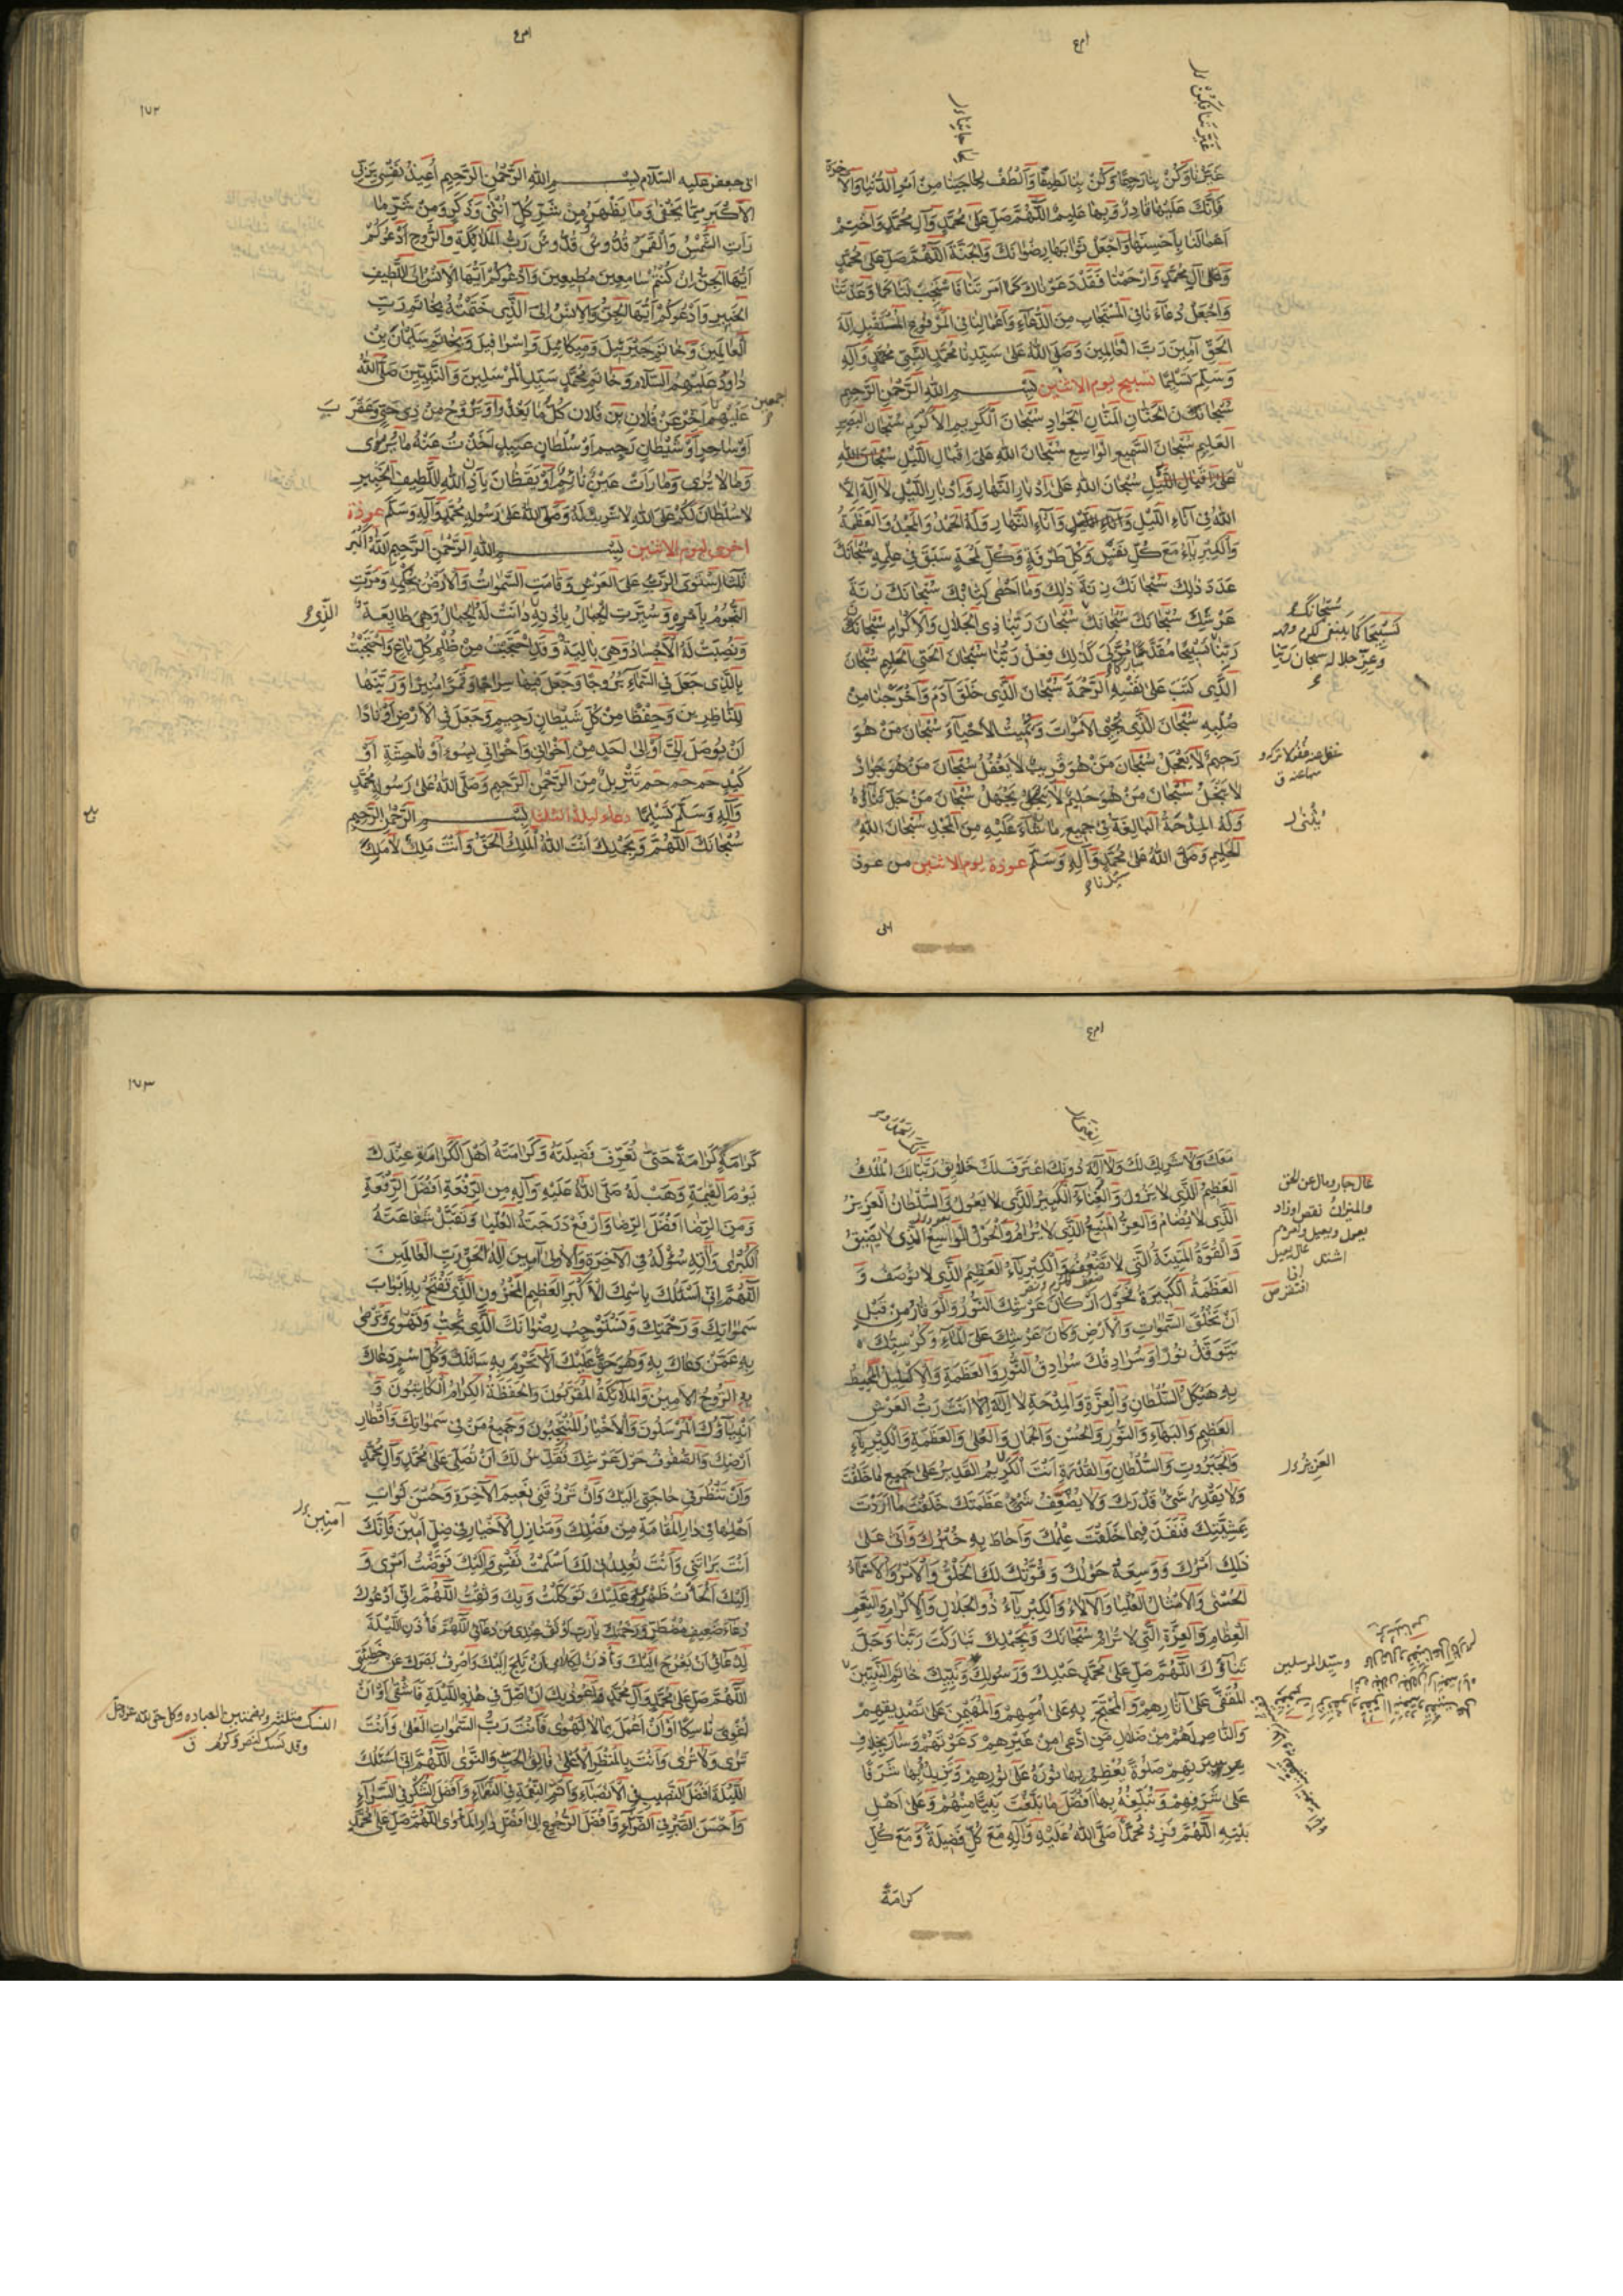 غَيْرُنَا وَكُنْ بِنَا رَحِيمًا وَكُنْ بِنَا لَطِيفًا وَالْطُفْ لِحَاجَتِنَا مِنْ أَمْرِ الدُّنْيَا وَالْآخِرَةِ
فَإِنَّكَ عَلَيْهَا قَادِرٌ وَبِهَا عَلِيمٌ اللّٰهُمَّ صَلِّ عَلَى مُحَمَّدٍ وَآلِ مُحَمَّدٍ وَاخْتِمْ
أَعْمَالَنَا بِأَحْسَنِهَا وَاجْعَلْ ثَوَابَهَا رِضْوَانَكَ وَالْجَنَّةَ اللّٰهُمَّ صَلِّ عَلَى مُحَمَّدٍ
وَعَلَى آلِ مُحَمَّدٍ وَارْحَمْنَا فَقَدْ دَعَوْنَاكَ كَمَا أَمَرْتَنَا فَاسْتَجِبْ لَنَا كَمَا وَعَدْتَنَا
وَاجْعَلْ دُعَاءَنَا فِي الْمُسْتَجَابِ مِنَ الدُّعَاءِ وَأَعْمَالَنَا فِي الْمَرْفُوعِ الْمُتَقَبَّلِ إِلٰهَ
الْحَقِّ آمِينَ رَبَّ الْعَالَمِينَ وَصَلَّى اللهُ عَلَى سَيِّدِنَا مُحَمَّدٍ النَّبِيِّ مُحَمَّدٍ وَآلِهِ
وَسَلَّمَ تَسْلِيمًا تسبيح يوم الاثنين بِسْمِ اللهِ الرَّحْمٰنِ الرَّحِيمِ
سُبْحَانَكَ الْحَنَّانِ الْمَنَّانِ الْجَوَادِ سُبْحَانَ الْكَرِيمِ الْأَكْرَمِ سُبْحَانَ الْبَصِيرِ
الْعَلِيمِ سُبْحَانَ السَّمِيعِ الْوَاسِعِ سُبْحَانَ اللهِ عَلَى إِقْبَالِ اللَّيْلِ سُبْحَانَ اللهِ
عَلَى إِقْبَالِ اللَّيْلِ سُبْحَانَ اللهِ عَلَى إِدْبَارِ النَّهَارِ وَإِدْبَارِ اللَّيْلِ لَا إِلٰهَ إِلَّا
اللهُ فِي آنَاءِ اللَّيْلِ وَآنَاءِ النَّهَارِ وَلَهُ الْحَمْدُ وَالْمَجْدُ وَالْعَظَمَةُ
وَالْكِبْرِيَاءُ مَعَ كُلِّ نَفَسٍ وَكُلِّ طَرْفَةٍ وَكُلِّ لَمْحَةٍ سَبَقَ فِي عِلْمِهِ سُبْحَانَكَ
عَدَدَ ذٰلِكَ سُبْحَانَكَ زِنَةَ ذٰلِكَ وَمَا أَحْصَى كِتَابُكَ سُبْحَانَكَ زِنَةَ
عَرْشِكَ سُبْحَانَكَ سُبْحَانَكَ سُبْحَانَ رَبِّنَا ذِي الْجَلَالِ وَالْإِكْرَامِ سُبْحَانَ
رَبِّنَا تَسْبِيحًا مُقَدَّسًا مُزَكًّى كَذٰلِكَ فِعْلُ رَبِّنَا سُبْحَانَ الْحَيِّ الْحَلِيمِ سُبْحَانَ
الَّذِي كَتَبَ عَلَى نَفْسِهِ الرَّحْمَةَ سُبْحَانَ الَّذِي خَلَقَ آدَمَ وَأَخْرَجَنَا مِنْ
صُلْبِهِ سُبْحَانَ الَّذِي يُحْيِي الْأَمْوَاتَ وَيُمِيتُ الْأَحْيَاءَ سُبْحَانَ مَنْ هُوَ
رَحِيمٌ لَا يَعْجَلُ سُبْحَانَ مَنْ هُوَ قَرِيبٌ لَا يَغْفُلُ سُبْحَانَ مَنْ هُوَ جَوَادٌ
لَا يَبْخَلُ سُبْحَانَ مَنْ هُوَ حَلِيمٌ لَا يَجْهَلُ سُبْحَانَ مَنْ جَلَّ ثَنَاؤُهُ
وَلَهُ الْمِدْحَةُ الْبَالِغَةُ فِي جَمِيعِ مَا يُثْنَى عَلَيْهِ مِنَ الْمَجْدِ سُبْحَانَ اللهِ
الْحَلِيمِ وَصَلَّى اللهُ عَلَى مُحَمَّدٍ وَآلِهِ وَسَلَّمَ عوذة يوم الاثنين من عوذ
سيدنا
سُبْحَانَكَ
تَسْبِيحًا كَمَا يَنْبَغِي لِكَرَمِ وَجْهِهِ
وَعِزِّ جَلَالِهِ سُبْحَانَ رَبِّنَا
يُثْنَى
ابی
١٧٢
ابی جعفر عليه السَّلَام بِسْمِ اللهِ الرَّحْمٰنِ الرَّحِيمِ أُعِيذُ نَفْسِي بِرَبِّيَ
الْأَكْبَرِ مِمَّا يَخْفَى وَمَا يَظْهَرُ وَمِنْ شَرِّ كُلِّ أُنْثَى وَذَكَرٍ وَمِنْ شَرِّ مَا
رَأَتِ الشَّمْسُ وَالْقَمَرُ قُدُّوسٌ قُدُّوسٌ رَبُّ الْمَلَائِكَةِ وَالرُّوحِ أَدْعُوكُمْ
أَيُّهَا الْجِنُّ إِنْ كُنْتُمْ سَامِعِينَ مُطِيعِينَ وَأَدْعُوكُمْ أَيُّهَا الْإِنْسُ إِلَى اللَّطِيفِ
الْخَبِيرِ وَأَدْعُوكُمْ أَيُّهَا الْجِنُّ وَالْإِنْسُ إِلَى الَّذِي خَتَمْتُهُ بِخَاتَمِ رَبِّ
الْعَالَمِينَ وَخَاتَمِ جَبْرَئِيلَ وَمِيكَائِيلَ وَإِسْرَافِيلَ وَبِخَاتَمِ سُلَيْمَانَ بْنِ
دَاوُدَ عَلَيْهِمُ السَّلَامُ وَخَاتَمِ مُحَمَّدٍ سَيِّدِ الْمُرْسَلِينَ وَالنَّبِيِّينَ صَلَّى اللهُ
عَلَيْهِمْ أَخِّرْ عَنْ فُلَانِ بْنِ فُلَانٍ كُلَّ مَا يَغْدُو أَوْ يَرُوحُ مِنْ ذِي حَيَّةٍ وَعَقْرَبٍ
أَوْ سَاحِرٍ أَوْ شَيْطَانٍ رَجِيمٍ أَوْ سُلْطَانٍ عَنِيدٍ أَخَذْتُ عَنْهُ مَا يُرَى
وَمَا لَا يُرَى وَمَا رَأَتْ عَيْنُ نَائِمٍ أَوْ يَقْظَانَ بِإِذْنِ اللهِ اللَّطِيفِ الْخَبِيرِ
لَا سُلْطَانَ لَكُمْ عَلَى اللهِ لَا شَرِيكَ لَهُ وَصَلَّى اللهُ عَلَى رَسُولِهِ مُحَمَّدٍ وَآلِهِ وَسَلَّمَ عوذة
اخرى ليوم الاثنين بِسْمِ اللهِ الرَّحْمٰنِ الرَّحِيمِ اَللهُ أَكْبَرُ
اسْتَوَى الرَّبُّ عَلَى الْعَرْشِ وَقَامَتِ السَّمٰوَاتُ وَالْأَرْضُ بِحِكْمَتِهِ وَمَرَّتِ
النُّجُومُ بِأَمْرِهِ وَسُيِّرَتِ الْجِبَالُ بِإِذْنِهِ دَانَتْ لَهُ الْجِبَالُ وَهِيَ طَائِعَةٌ
وَنُصِبَتْ لَهُ الْأَجْسَادُ وَهِيَ بَالِيَةٌ وَقَدِ احْتَجَبْتُ مِنْ ظُلْمِ كُلِّ بَاغٍ وَاحْتَجَبْتُ
بِالَّذِي جَعَلَ فِي السَّمَاءِ بُرُوجًا وَجَعَلَ فِيهَا سِرَاجًا وَقَمَرًا مُنِيرًا وَزَيَّنَهَا
لِلنَّاظِرِينَ وَحِفْظًا مِنْ كُلِّ شَيْطَانٍ رَجِيمٍ وَجَعَلَ فِي الْأَرْضِ أَوْتَادًا
أَنْ يُوصَلَ إِلَيَّ أَوْ إِلَى أَحَدٍ مِنْ إِخْوَانِي وَأَخَوَاتِي بِسُوءٍ أَوْ فَاحِشَةٍ أَوْ
كَيْدٍ حم حم حم تَنْزِيلٌ مِنَ الرَّحْمٰنِ الرَّحِيمِ وَصَلَّى اللهُ عَلَى رَسُولِهِ مُحَمَّدٍ
وَآلِهِ وَسَلَّمَ تَسْلِيمًا دعاء ليلة الثلثا بِسْمِ اللهِ الرَّحْمٰنِ الرَّحِيمِ
سُبْحَانَكَ اللّٰهُمَّ وَبِحَمْدِكَ أَنْتَ اللهُ الْمَلِكُ الْحَقُّ وَأَنْتَ مَلِكٌ لَا مَلِكَ
اجمعين
الَّذِي
مَعَكَ وَلَا شَرِيكَ لَكَ وَلَا إِلٰهَ دُونَكَ اعْتَرَفَ لَكَ الْخَلَائِقُ رَبَّنَا لَكَ الْمُلْكُ
الْعَظِيمُ الَّذِي لَا يَزُولُ وَالْغَنَاءُ الْكَبِيرُ الَّذِي لَا يَعُولُ وَالسُّلْطَانُ الْعَزِيزُ
الَّذِي لَا يُضَامُ وَالْعِزُّ الْمَنِيعُ الَّذِي لَا يُرَامُ وَالْحَوْلُ الْوَاسِعُ الَّذِي لَا يَضِيقُ
وَالْقُوَّةُ الْمَتِينَةُ الَّتِي لَا تَضْعُفُ وَالْكِبْرِيَاءُ الْعَظِيمُ الَّذِي لَا يُوصَفُ وَ
الْعَظَمَةُ الْكَبِيرَةُ فَحَوْلَ أَرْكَانِ عَرْشِكَ النُّورُ وَالْوَقَارُ مِنْ قَبْلِ
أَنْ تَخْلُقَ السَّمٰوَاتِ وَالْأَرْضَ وَكَانَ عَرْشُكَ عَلَى الْمَاءِ وَكُرْسِيُّكَ
يَتَوَقَّدُ نُورًا وَسُرَادِقُكَ سُرَادِقُ النُّورِ وَالْعَظَمَةِ وَالْإِكْلِيلُ الْمُحِيطُ
بِهِ هَيْكَلُ السُّلْطَانِ وَالْعِزَّةِ وَالْمِدْحَةِ لَا إِلٰهَ إِلَّا أَنْتَ رَبُّ الْعَرْشِ
الْعَظِيمِ وَالْبَهَاءِ وَالنُّورِ وَالْحُسْنِ وَالْجَمَالِ وَالْعُلَى وَالْعَظَمَةِ وَالْكِبْرِيَاءِ
وَالْجَبَرُوتِ وَالسُّلْطَانِ وَالْقُدْرَةِ أَنْتَ الْكَرِيمُ الْقَدِيرُ عَلَى جَمِيعِ مَا خَلَقْتَ
وَلَا يَقْدِرُ شَيْءٌ قَدْرَكَ وَلَا يُضَعِّفُ شَيْءٌ عَظَمَتَكَ خَلَقْتَ مَا أَرَدْتَ
بِمَشِيَّتِكَ فَنَفَذَ فِيمَا خَلَقْتَ عِلْمُكَ وَأَحَاطَ بِهِ خُبْرُكَ وَأَتَى عَلَى
ذٰلِكَ أَمْرُكَ وَوَسِعَهُ حَوْلُكَ وَقُوَّتُكَ لَكَ الْخَلْقُ وَالْأَمْرُ وَالْأَسْمَاءُ
الْحُسْنَى وَالْأَمْثَالُ الْعُلْيَا وَالْآلَاءُ وَالْكِبْرِيَاءُ ذُو الْجَلَالِ وَالْإِكْرَامِ وَالنِّعَمِ
الْعِظَامِ وَالْعِزَّةِ الَّتِي لَا تُرَامُ سُبْحَانَكَ وَبِحَمْدِكَ تَبَارَكْتَ رَبَّنَا وَجَلَّ
ثَنَاؤُكَ اللّٰهُمَّ صَلِّ عَلَى مُحَمَّدٍ عَبْدِكَ وَرَسُولِكَ وَنَبِيِّكَ خَاتَمِ النَّبِيِّينَ
الْمُقَفَّى عَلَى آثَارِهِمْ وَالْمُحْتَجِّ بِهِ عَلَى أُمَمِهِمْ وَالْمُهَيْمِنِ عَلَى تَصْدِيقِهِمْ
وَالنَّاصِرِ لَهُمْ مِنْ ضَلَالِ مَنِ ادَّعَى مِنْ غَيْرِهِمْ دَعْوَتَهُمْ وَسَارَ بِخِلَافِ
سِيرَتِهِمْ صَلٰوةً تُعَظِّمُ بِهَا نُورَهُ عَلَى نُورِهِمْ وَتَزِيدُهُ بِهَا شَرَفًا
عَلَى شَرَفِهِمْ وَتُبَلِّغُهُ بِهَا أَفْضَلَ مَا بَلَّغْتَ نَبِيًّا مِنْهُمْ وَعَلَى أَهْلِ
بَيْتِهِ اللّٰهُمَّ فَزِدْ مُحَمَّدًا صَلَّى اللهُ عَلَيْهِ وَآلِهِ مَعَ كُلِّ فَضِيلَةٍ وَمَعَ كُلِّ
عال جار ومال عن الحق
والميزان نقص او زاد
العزيز
وسيد المرسلين
كرامة
١٧٣
كَرَامَةٍ كَرَامَةً حَتَّى تُعَرِّفَ فَضِيلَتَهُ وَكَرَامَتَهُ أَهْلَ الْكَرَامَةِ عِنْدَكَ
يَوْمَ الْقِيٰمَةِ وَهَبْ لَهُ صَلَّى اللهُ عَلَيْهِ وَآلِهِ مِنَ الرِّفْعَةِ أَفْضَلَ الرِّفْعَةِ
وَمِنَ الرِّضَا أَفْضَلَ الرِّضَا وَارْفَعْ دَرَجَتَهُ الْعُلْيَا وَتَقَبَّلْ شَفَاعَتَهُ
الْكُبْرَى وَآتِهِ سُؤْلَهُ فِي الْآخِرَةِ وَالْأُولَى آمِينَ إِلٰهَ الْحَقِّ رَبَّ الْعَالَمِينَ
اللّٰهُمَّ إِنِّي أَسْئَلُكَ بِاسْمِكَ الْأَكْبَرِ الْعَظِيمِ الْمَخْزُونِ الَّذِي تَفْتَحُ بِهِ أَبْوَابَ
سَمٰوَاتِكَ وَرَحْمَتِكَ وَتَسْتَوْجِبُ رِضْوَانَكَ الَّذِي تُحِبُّ وَتَهْوَى وَتَرْضَى
بِهِ عَمَّنْ دَعَاكَ بِهِ وَهُوَ حَقٌّ عَلَيْكَ أَلَّا تَحْرِمَ بِهِ سَائِلَكَ وَبِكُلِّ اسْمٍ دَعَاكَ
بِهِ الرُّوحُ الْأَمِينُ وَالْمَلَائِكَةُ الْمُقَرَّبُونَ وَالْحَفَظَةُ الْكِرَامُ الْكَاتِبُونَ وَ
أَنْبِيَاؤُكَ الْمُرْسَلُونَ وَالْأَخْيَارُ الْمُنْتَجَبُونَ وَجَمِيعُ مَنْ فِي سَمٰوَاتِكَ وَأَقْطَارِ
أَرْضِكَ وَالصُّفُوفُ حَوْلَ عَرْشِكَ تُقَدِّسُ لَكَ أَنْ تُصَلِّيَ عَلَى مُحَمَّدٍ وَآلِ مُحَمَّدٍ
وَأَنْ تَنْظُرَ فِي حَاجَتِي إِلَيْكَ وَأَنْ تَرْزُقَنِي نَعِيمَ الْآخِرَةِ وَحُسْنَ ثَوَابِ
أَهْلِهَا فِي دَارِ الْمُقَامَةِ مِنْ فَضْلِكَ وَمَنَازِلِ الْأَخْيَارِ فِي ظِلٍّ أَمِينَ فَإِنَّكَ
أَنْتَ بَرَأْتَنِي وَأَنْتَ تُعِيدُنِي لَكَ أَسْلَمْتُ نَفْسِي وَإِلَيْكَ فَوَّضْتُ أَمْرِي وَ
إِلَيْكَ أَلْجَأْتُ ظَهْرِي وَعَلَيْكَ تَوَكَّلْتُ وَبِكَ وَثِقْتُ اللّٰهُمَّ إِنِّي أَدْعُوكَ
دُعَاءَ ضَعِيفٍ مُضْطَرٍّ وَرَحْمَتُكَ يَا رَبِّ أَوْثَقُ عِنْدِي مِنْ دُعَائِي اللّٰهُمَّ فَأْذَنِ اللَّيْلَةَ
لِدُعَائِي أَنْ يَعْرُجَ إِلَيْكَ وَأْذَنْ لِكَلَامِي أَنْ يَلِجَ إِلَيْكَ وَاصْرِفْ بَصَرَكَ عَنْ خَطِيئَتِي
اللّٰهُمَّ صَلِّ عَلَى مُحَمَّدٍ وَآلِ مُحَمَّدٍ وَأَعُوذُ بِكَ أَنْ أَضِلَّ فِي هٰذِهِ اللَّيْلَةِ فَأَشْقَى أَوْ أَنْ
أُغْوِيَ نَاسِكًا أَوْ أَنْ أَعْمَلَ بِمَا لَا تَهْوَى فَأَنْتَ رَبُّ السَّمٰوَاتِ الْعُلَى وَأَنْتَ
تَرَى وَلَا تُرَى وَأَنْتَ بِالْمَنْظَرِ الْأَعْلَى فَالِقُ الْحَبِّ وَالنَّوَى اللّٰهُمَّ إِنِّي أَسْئَلُكَ
اللَّيْلَةَ أَفْضَلَ النَّصِيبِ فِي الْأَنْصِبَاءِ وَأَتَمَّ النِّعْمَةِ فِي النَّعْمَاءِ وَأَفْضَلَ الشُّكْرِ فِي السَّرَّاءِ
وَأَحْسَنَ الصَّبْرِ فِي الضَّرَّاءِ وَأَفْضَلَ الرُّجُوعِ إِلَى أَفْضَلِ دَارِ الْمَأْوَى اللّٰهُمَّ صَلِّ عَلَى مُحَمَّدٍ
آمنين
النسك مثلثة وبضمتين العبادة وكل حق لله عز وجل
وقد نسك كنصر وكرم ق